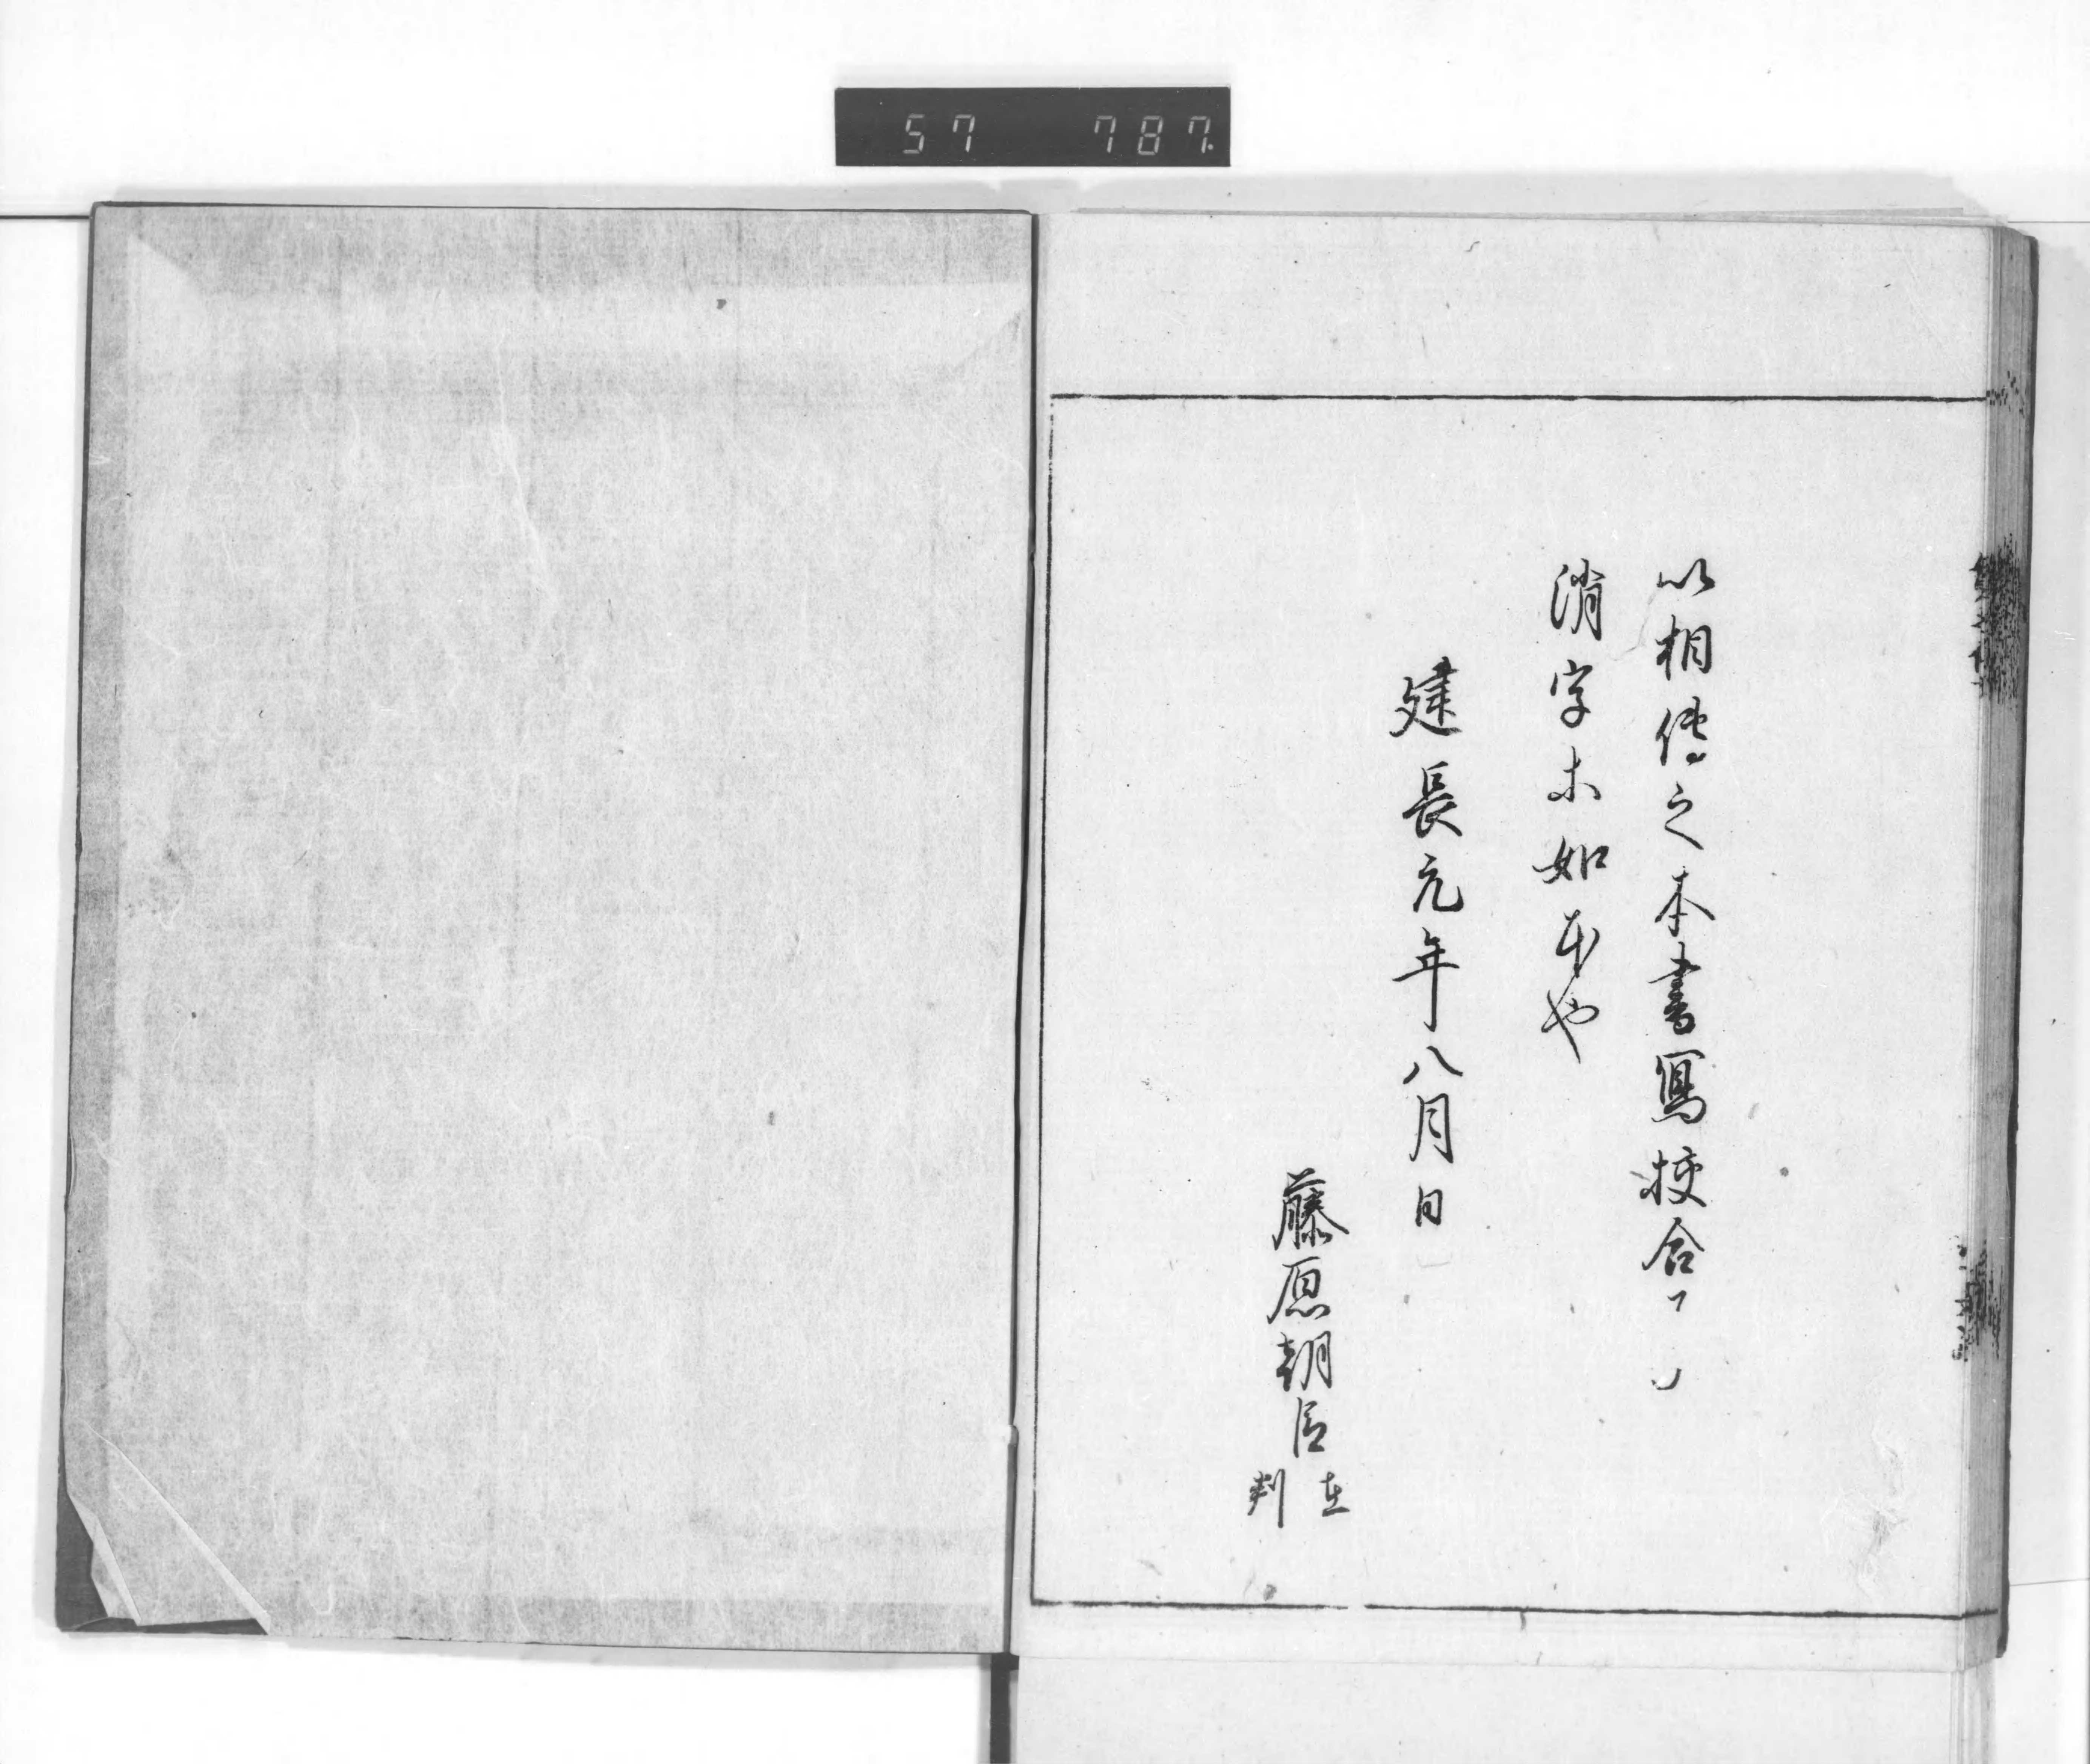 57 787
以相傳之本書寫挍合了
消字木如本也
建長元年八月日
藤原朝臣
在
判